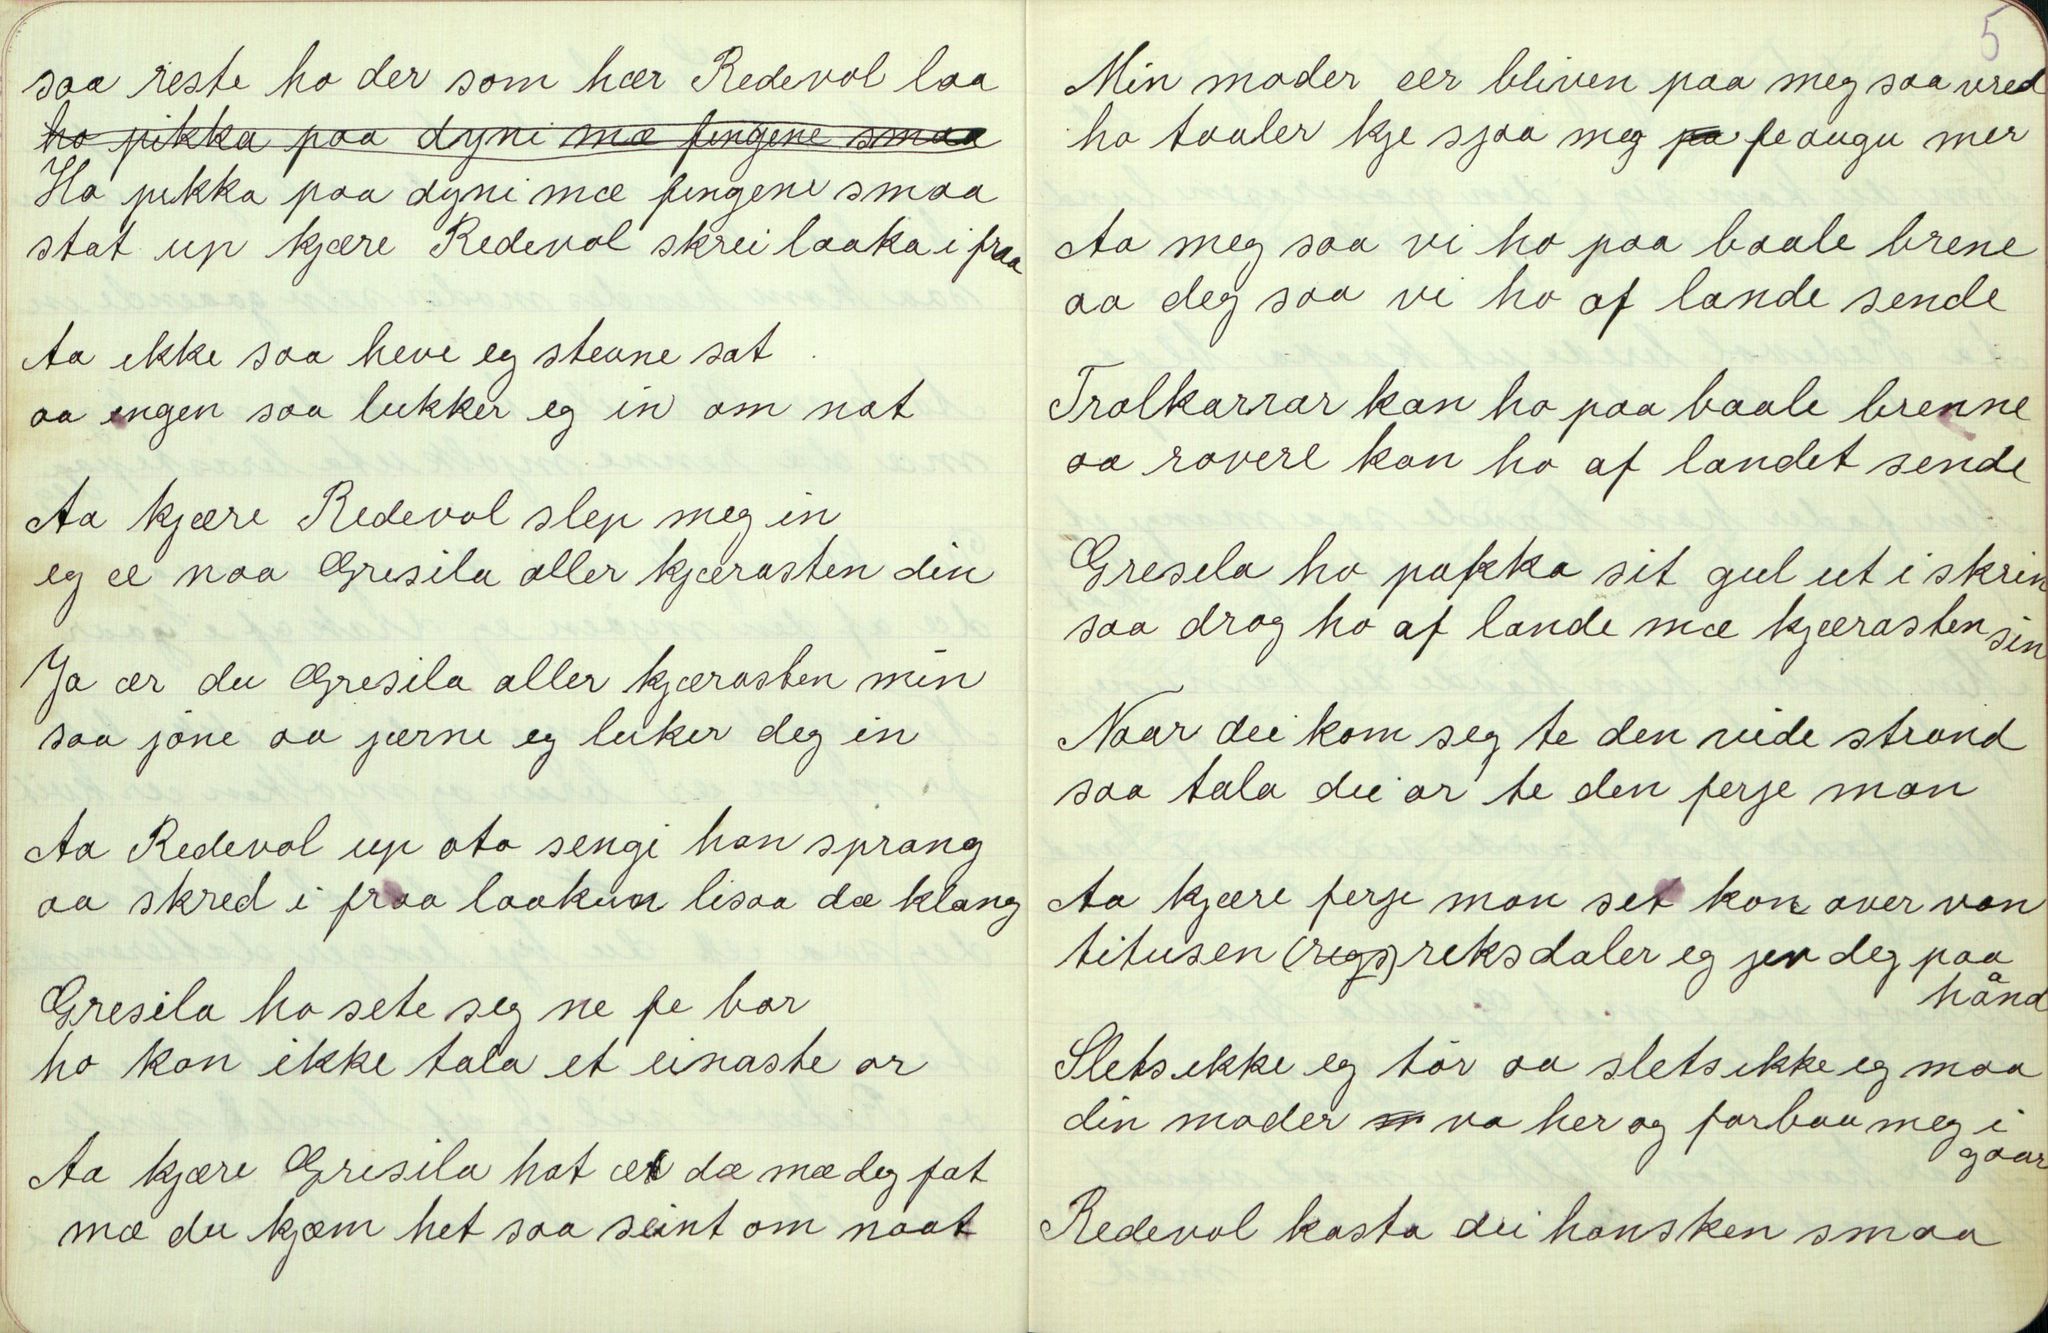 saa reste ho der som hær Redevol laa
ho pikka paa dyni mæ fingene smaa
Ho pikka paa dyni mæ fingene smaa
stat up kjære Redevol skrei laaka i fraa
Aa ikke saa heve eg stevne sat
aa ingen saa lukker eg in om nat
Aa kjære Redevol slep meg in
eg æ naa Gresila aller kjærasten din
Ja ær du Gresila aller kjærasten min
saa jöne aa jærne eg luker deg in
Aa Redevol up ota sengi han sprang
aa skred i fraa laakun lisaa dæ klang
Gresila ho sete seg ne fe bor
ho kan ikke tala et einaste or
Aa kjære Gresila hat ær dæ mæ deg fat
mæ du kjæm het saa seint om naat
5
Min moder eer bliven paa meg saa vred
ho taaler kje sjaa meg fe augu mer
Aa meg saa vi ho paa baale brene
aa deg saa vi ho af lande sende
Trolkarrar kan ho paa baale brenne
aa rovere kan ho af landet sende
Gresela ho pakka sit gul ut i skrin
saa drog ho af lande mæ kjærasten sin
Naar dei kom seg te den vide strand
saa tala dei or te den ferje man
Aa kjære ferje man set kon over van
titusen (regs) reksdaler eg jer deg paa
hånd
Slets ikke eg tör aa slets ikke eg maa
din moder va her og forbau meg i
gaar
Redevol kasta dei hansken smaa